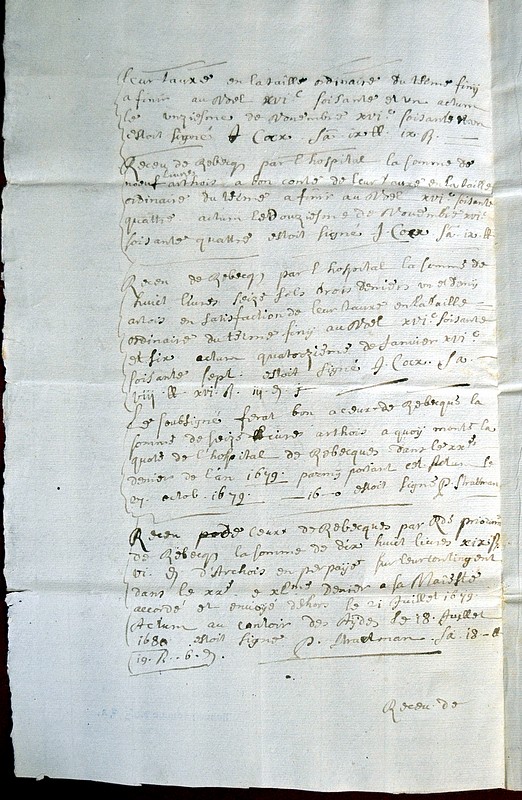 leur tauxe en la taille ordinaire du terme finy
a finir au Noel xvi.c soisante et un actum
le unziesme de Novembre xvi.c soisante et un
estoit signé J Cocx. Sa. ix ll. ix s.
Receu de Rebecq par l'hospital la somme de
noeuf livres arthois a bon conte de leur tauxe en la taille
ordinaire du terme a finir au Noel xvi.c soisante
quattre actum le douziesme de Novembre xvi.c
soisante quattre estoit signé J Cocx Sa. ix ll
Receu de Rebecq par l'hospital la somme de
huit livres seize sols trois deniers un et demy
artois en satisfaction de leur tauxe en la taille
ordinaire du terme finy au Noel xvi.c soisante
et six actum quatorziesme de Janvier xvi.c
soisante sept. estoit signé J. Cocx. Sa.
viii. ll. xvi. s. iii. d.
Le soubsigné ferat bon a ceux de Rebecque la
somme de seize livres arthois a quoy monte la
quote de l'hospital de Rebecques dans le xx.e
denier de l'an 1679. parmy portant cet. Actum le
27. octob. 1679. —16—0 estoit signé P. Stratman
Receu de ceux de Rebecques par
de Rebecq la somme de dix huit livres xix s.
vi. d. d'Arthois en sur leur contingent
dans le xx.e e xl.me denier a sa Majesté
accordé et envoyé dehors le 21 Juillet 1679.
Actum au contoir des Aydes le 18. Juillet
1680 estoit signé P. Stratman. Sa. 18-ll
19. s. 6. d.
Receu de